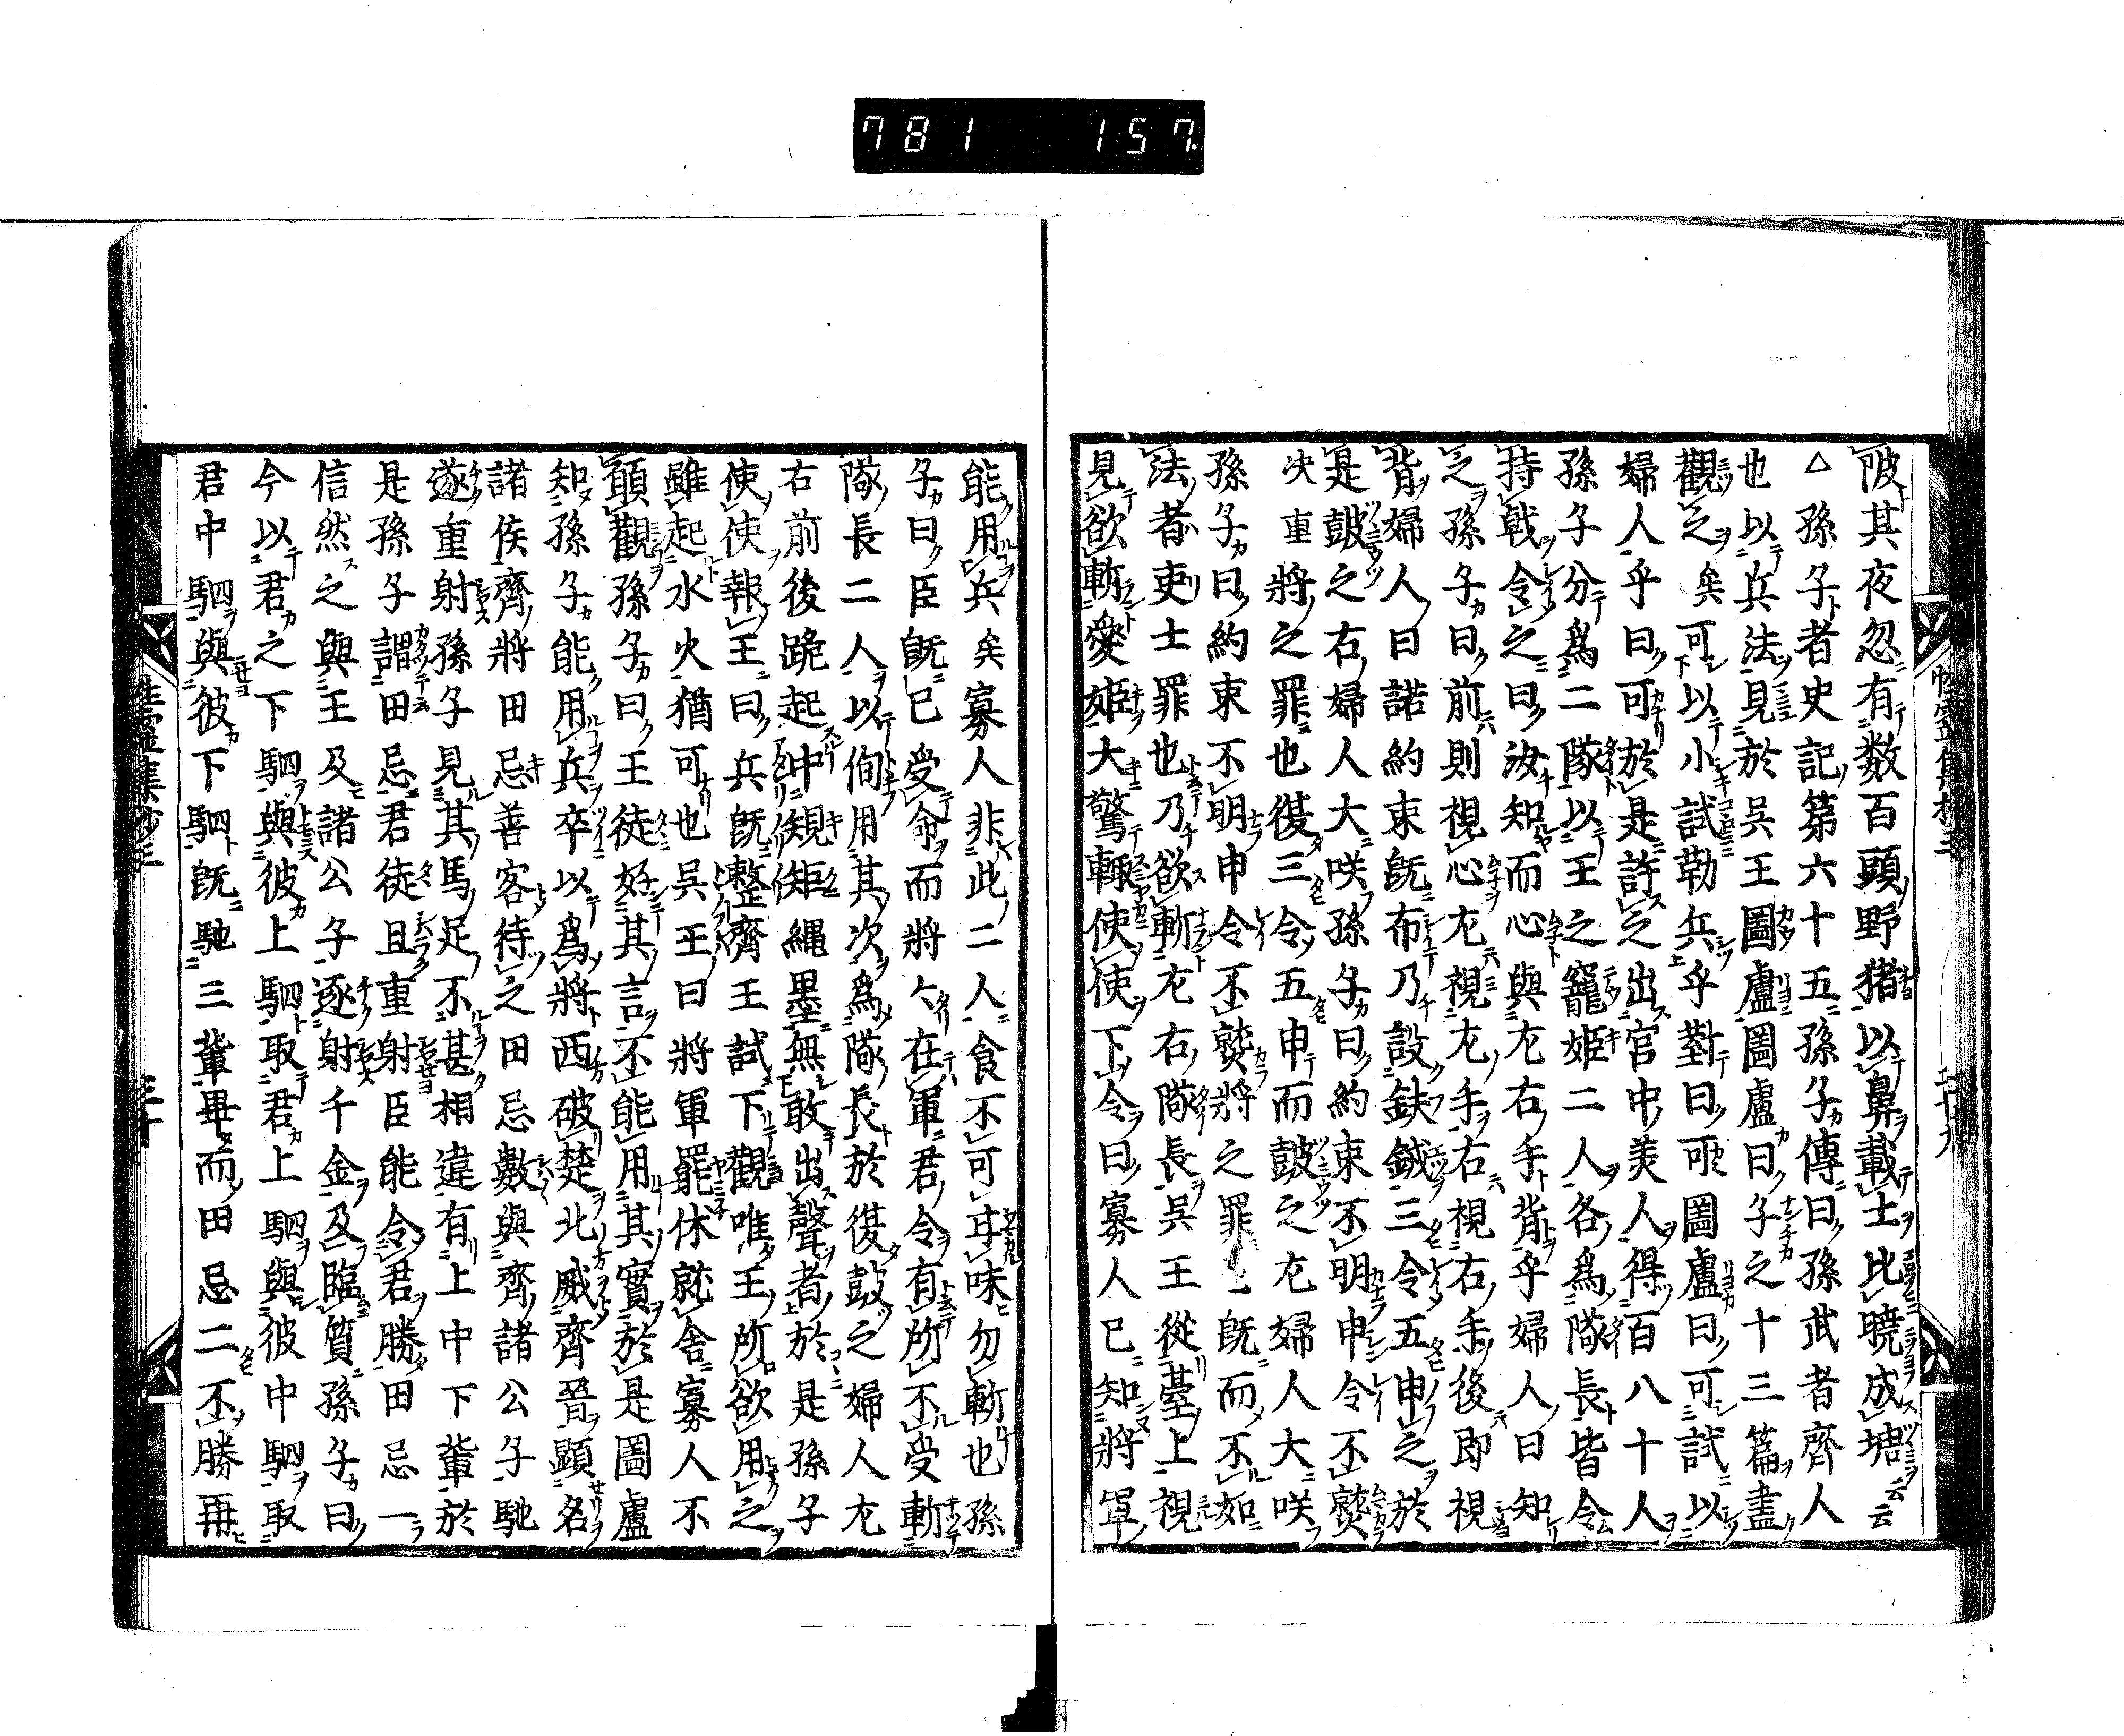 781 157.
陂其夜忽有数百頭野猪以鼻載士比曉成塘云云
△孫子者史記第六十五孫子傳曰孫武者齊人
也以兵法見於吳王闔廬闔廬曰子之十三篇盡
觀之矣可以小試勒兵乎對曰可闔廬曰可試以
婦人乎曰可於是許之出宮中美人得百八十人
孫子分爲二隊以王之寵姬二人各爲隊長皆令
持戟令之曰汝知而心與左右手背乎婦人曰知
之孫子曰前則視心左視左手右視右手後即視
背婦人曰諾約束既布乃設鈇鉞三令五申之於
是鼓之右婦人大咲孫子曰約束不明申令不熟
決重將之罪也復三令五申而鼓之左婦人大咲
孫子曰約束不明申令不熟將之罪既而不如
法者吏士罪也乃欲斬左右隊長吳王從臺上視
見欲斬愛姬大驚輙使使下令曰寡人已知將軍
能用兵矣寡人非此二人食不可甘味勿斬也孫
子曰臣既已受命而將々在軍君令有所不受斬
隊長二人以侚用其次爲隊長於復鼓之婦人左
右前後跪起中規矩繩墨無敢出聲者於是孫子
使使報王曰兵既整齊王試下觀唯王所欲用之
雖起水火猶可也吳王曰將軍罷休就舍寡人不
願觀孫子曰王徒好其言不能用其實於是闔廬
知孫子能用兵卒以爲將西破楚北威齊晉顯名
諸侯齊將田忌善客待之田忌數與齊諸公子馳
遂重射孫子見其馬足不甚相違有上中下輩於
是孫子謂田忌君徒且重射臣能令君勝田忌一
信然之與王及諸公子逐射千金及臨質孫子曰
今以君之下駟與彼上駟取君上駟與彼中駟取
君中駟與彼下駟既馳三輩畢而田忌二不勝再